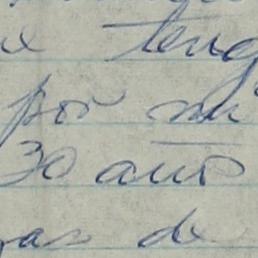 teng
por mi
30 años
as de